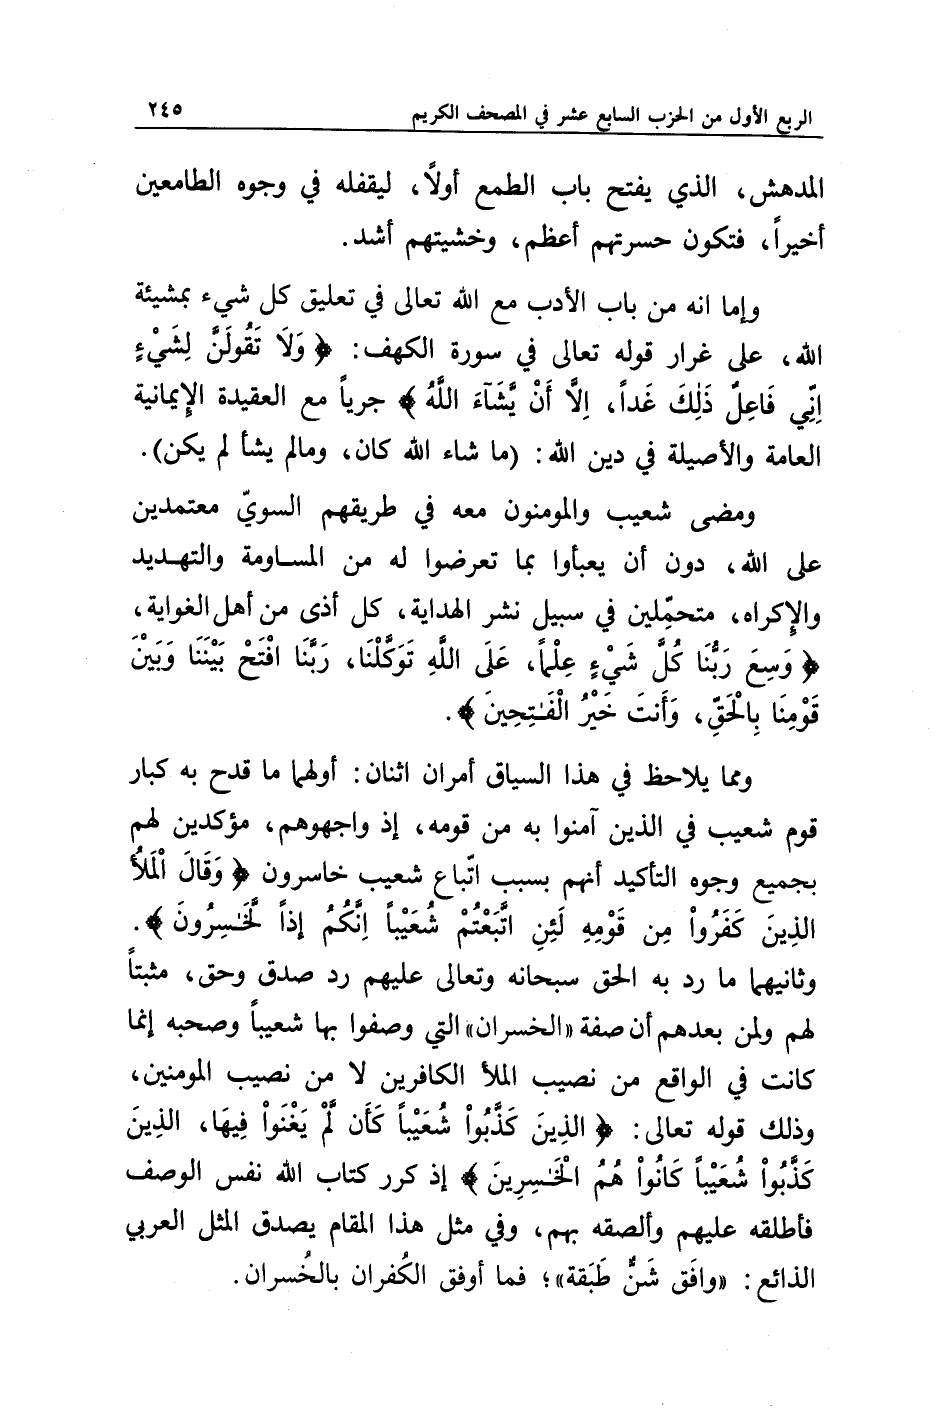 الربع الأول من الحزب السابع عشر في المصحف الكريم ٢٤٥
المدهش، الذي يفتح باب الطمع أولًا، ليقفله في وجوه الطامعين
أخيراً، فتكون حسرتهم أعظم، وخشيتهم أشد.
وإما انه من باب الأدب مع الله تعالى في تعليق كل شيء بمشيئة
الله، على غرار قوله تعالى في سورة الكهف: ﴿ وَلَا تَقُولَنَّ لِشَيْءٍ
اِنِّي فَاعِلٌ ذَٰلِكَ غَداً، اِلَّا أَنْ يَّشَآءَ اللَّهُ ﴾ جرياً مع العقيدة الإيمانية
العامة والأصيلة في دين الله: (ما شاء الله كان، ومالم يشأ لم يكن).
ومضى شعيب والمومنون معه في طريقهم السويّ معتمدين
على الله، دون أن يعبأوا بما تعرضوا له من المساومة والتهديد
والإكراه، متحمِّلين في سبيل نشر الهداية، كل أذى من أهل الغواية،
﴿ وَسِعَ رَبُّنَا كُلَّ شَيْءٍ عِلْماً، عَلَى اللَّهِ تَوَكَّلْنَا، رَبَّنَا افْتَحْ بَيْنَنَا وَبَيْنَ
قَوْمِنَا بِالْحَقِّ، وَأَنتَ خَيْرُ الْفَٰتِحِينَ ﴾.
ومما يلاحظ في هذا السياق أمران اثنان: أولهما ما قدح به كبار
قوم شعيب في الذين آمنوا به من قومه، إذ واجهوهم، مؤكدين لهم
بجميع وجوه التأكيد أنهم بسبب اتّباع شعيب خاسرون ﴿ وَقَالَ اْلَمَلأُ
الذِينَ كَفَرُواْ مِن قَوْمِهِ لَئِنِ اتَّبَعْتُمْ شُعَيْباً اِنَّكُمُ إِذاً لَّخَٰسِرُونَ ﴾.
وثانيهما ما رد به الحق سبحانه وتعالى عليهم رد صدق وحق، مثبتاً
لهم ولمن بعدهم أن صفة «الخسران» التي وصفوا بها شعيباً وصحبه إنما
كانت في الواقع من نصيب الملأ الكافرين لا من نصيب المومنين،
وذلك قوله تعالى: ﴿ الذِينَ كَذَّبُواْ شُعَيْباً كَأَن لَّمْ يَغْنَواْ فِيهَا، الذِينَ
كَذَّبُواْ شُعَيْباً كَانُواْ هُمُ الْخَٰسِرِينَ ﴾ إذ كرر كتاب الله نفس الوصف
فأطلقه عليهم وألصقه بهم، وفي مثل هذا المقام يصدق المثل العربي
الذائع: «وافَق شَنٌّ طَبَقة»؛ فما أوفق الكُفران بالخُسران.